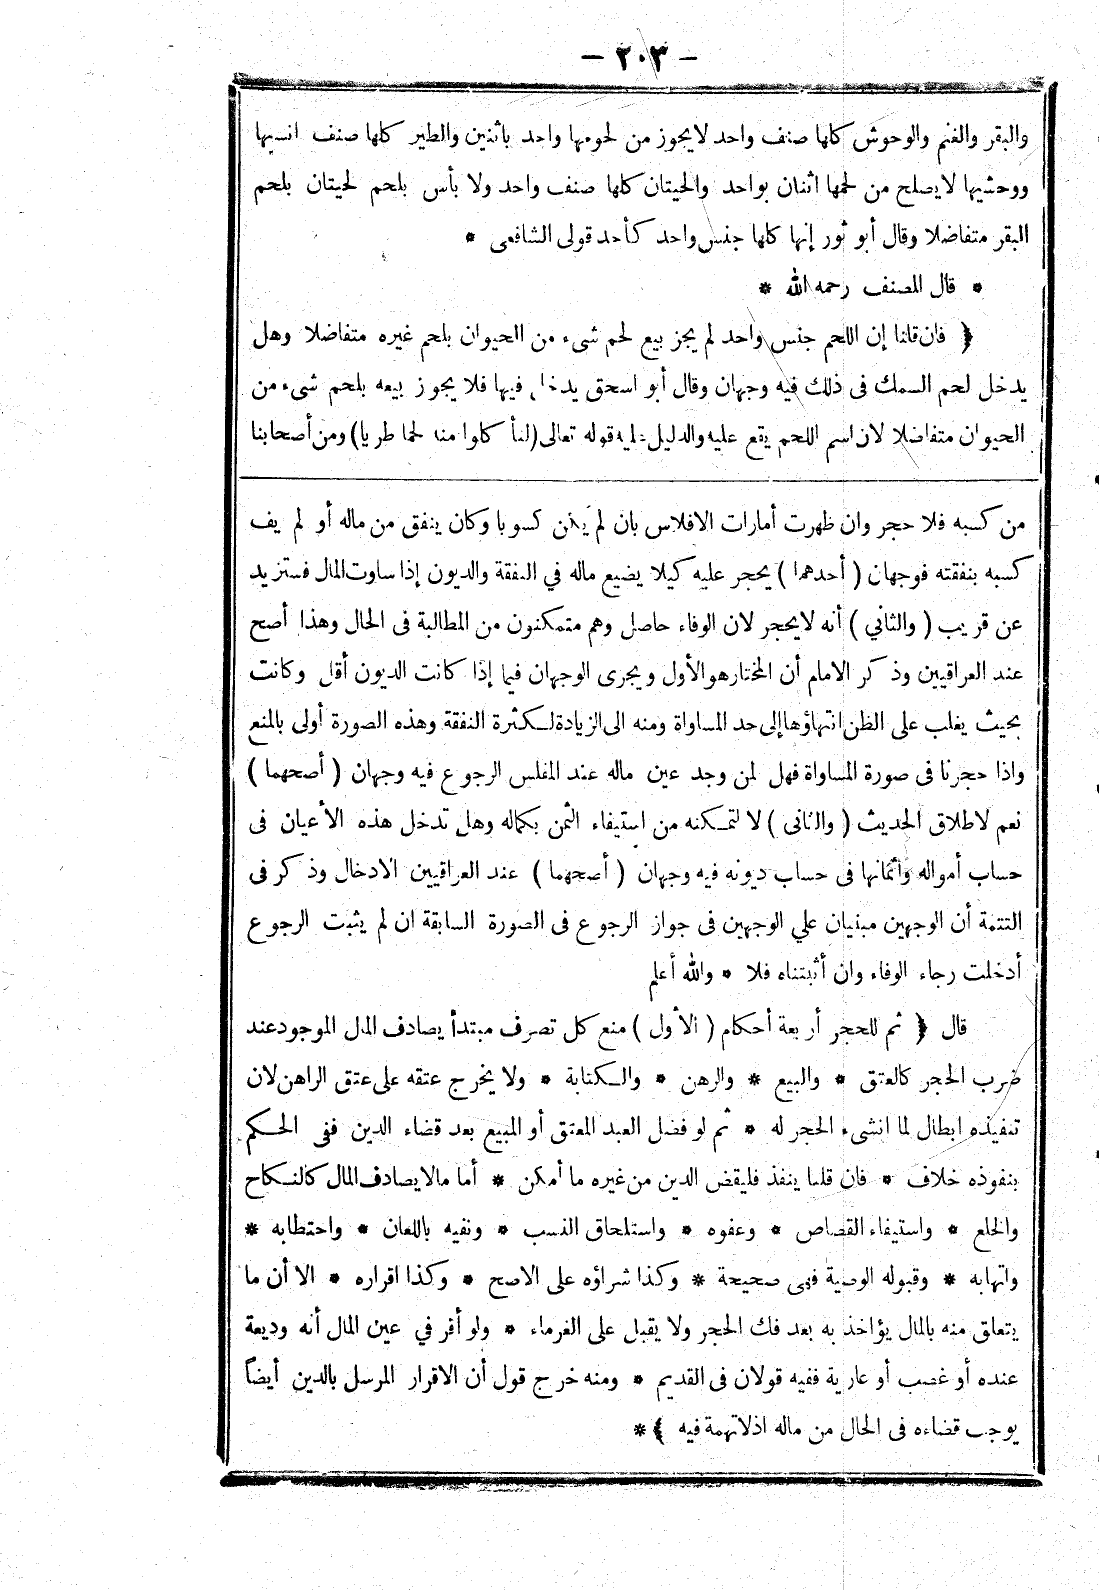 — ٢٠٣ —
والبقر والغنم والوحوش كلها صنف واحد لايجوز من لحومها واحد باثنين والطير كلها صنف انسيها
ووحشيها لايصلح من لحمها اثنان بواحد والحيتان كلها صنف واحد ولا بأس بلحم لحيتان بلحم
البقر متفاضلا وقال أبو ثور إنها كلها جنس واحد كأحد قولى الشافعى *
* قال المصنف رحمه الله *
﴿ فان قلنا إن اللحم جنس واحد لم يجز بيع لحم شىء من الحيوان بلحم غيره متفاضلا وهل
يدخل لحم السمك فى ذلك فيه وجهان وقال أبو اسحق يدخل فيها فلا يجوز بيعه بلحم شىء من
الحيوان متفاضلا لان اسم اللحم يقع عليه والدليل عليه قوله تعالى (لتأ كلوا منه لحما طريا) ومن أصحابنا
من كسبه فلا حجر وان ظهرت أمارات الافلاس بان لم يكن كسوبا وكان ينفق من ماله أو لم يف
كسبه بنفقته فوجهان ( أحدهما ) يحجر عليه كيلا يضيع ماله في النفقة والديون إذا ساوت المال فستزيد
عن قريب ( والثاني ) أنه لايحجر لان الوفاء حاصل وهم متمكنون من المطالبة فى الحال وهذا أصح
عند العراقيين وذ كر الامام أن المختار هو الأول ويجرى الوجهان فيما إذا كانت الديون أقل وكانت
بحيث يغلب على الظن انتهاؤها إلى حد المساواة ومنه الى الزيادة لكثرة النفقة وهذه الصورة أولى بالمنع
واذا حجرنا فى صورة المساواة فهل لمن وجد عين ماله عند المفلس الرجوع فيه وجهان ( أصحهما )
نعم لاطلاق الحديث ( والثانى ) لا لتمكنه من استيفاء الثمن بكماله وهل تدخل هذه الأعيان فى
حساب أمواله وأثمانها فى حساب ديونه فيه وجهان ( أصحهما ) عند العراقيين الادخال وذ كر فى
التتمة أن الوجهين مبنيان علي الوجهين فى جواز الرجوع فى الصورة السابقة ان لم يثبت الرجوع
أدخلت رجاء الوفاء وان أثبتناه فلا * والله أعلم
قال ﴿ ثم للحجر أربعة أحكام ( الأول ) منع كل تصرف مبتدأ يصادف المال الموجود عند
ضرب الحجر كالعتق * والبيع * والرهن * والكتابة * ولا يخرج عتقه على عتق الراهن لان
تنفيذه ابطال لما انشىء الحجر له * ثم لو فضل العبد المعتق أو المبيع بعد قضاء الدين ففى الحكم
بنفوذه خلاف * فان قلنا ينفذ فليقض الدين من غيره ما أمكن * أما مالايصادف المال كالنكاح
والخلع * واستيفاء القصاص * وعفوه * واستلحاق النسب * ونفيه باللعان * واحتطابه *
واتهابه * وقبوله الوصية فهى صحيحة * وكذا شراؤه على الاصح * وكذا اقراره * الا أن ما
يتعلق منه بالمال يؤاخذ به بعد فك الحجر ولا يقبل على الغرماء * ولو أقر في عين المال أنه وديعة
عنده أو غصب أو عارية ففيه قولان فى القديم * ومنه خرج قول أن الاقرار المرسل بالدين أيضاً
يوجب قضاءه فى الحال من ماله اذلاتهمة فيه ﴾ *